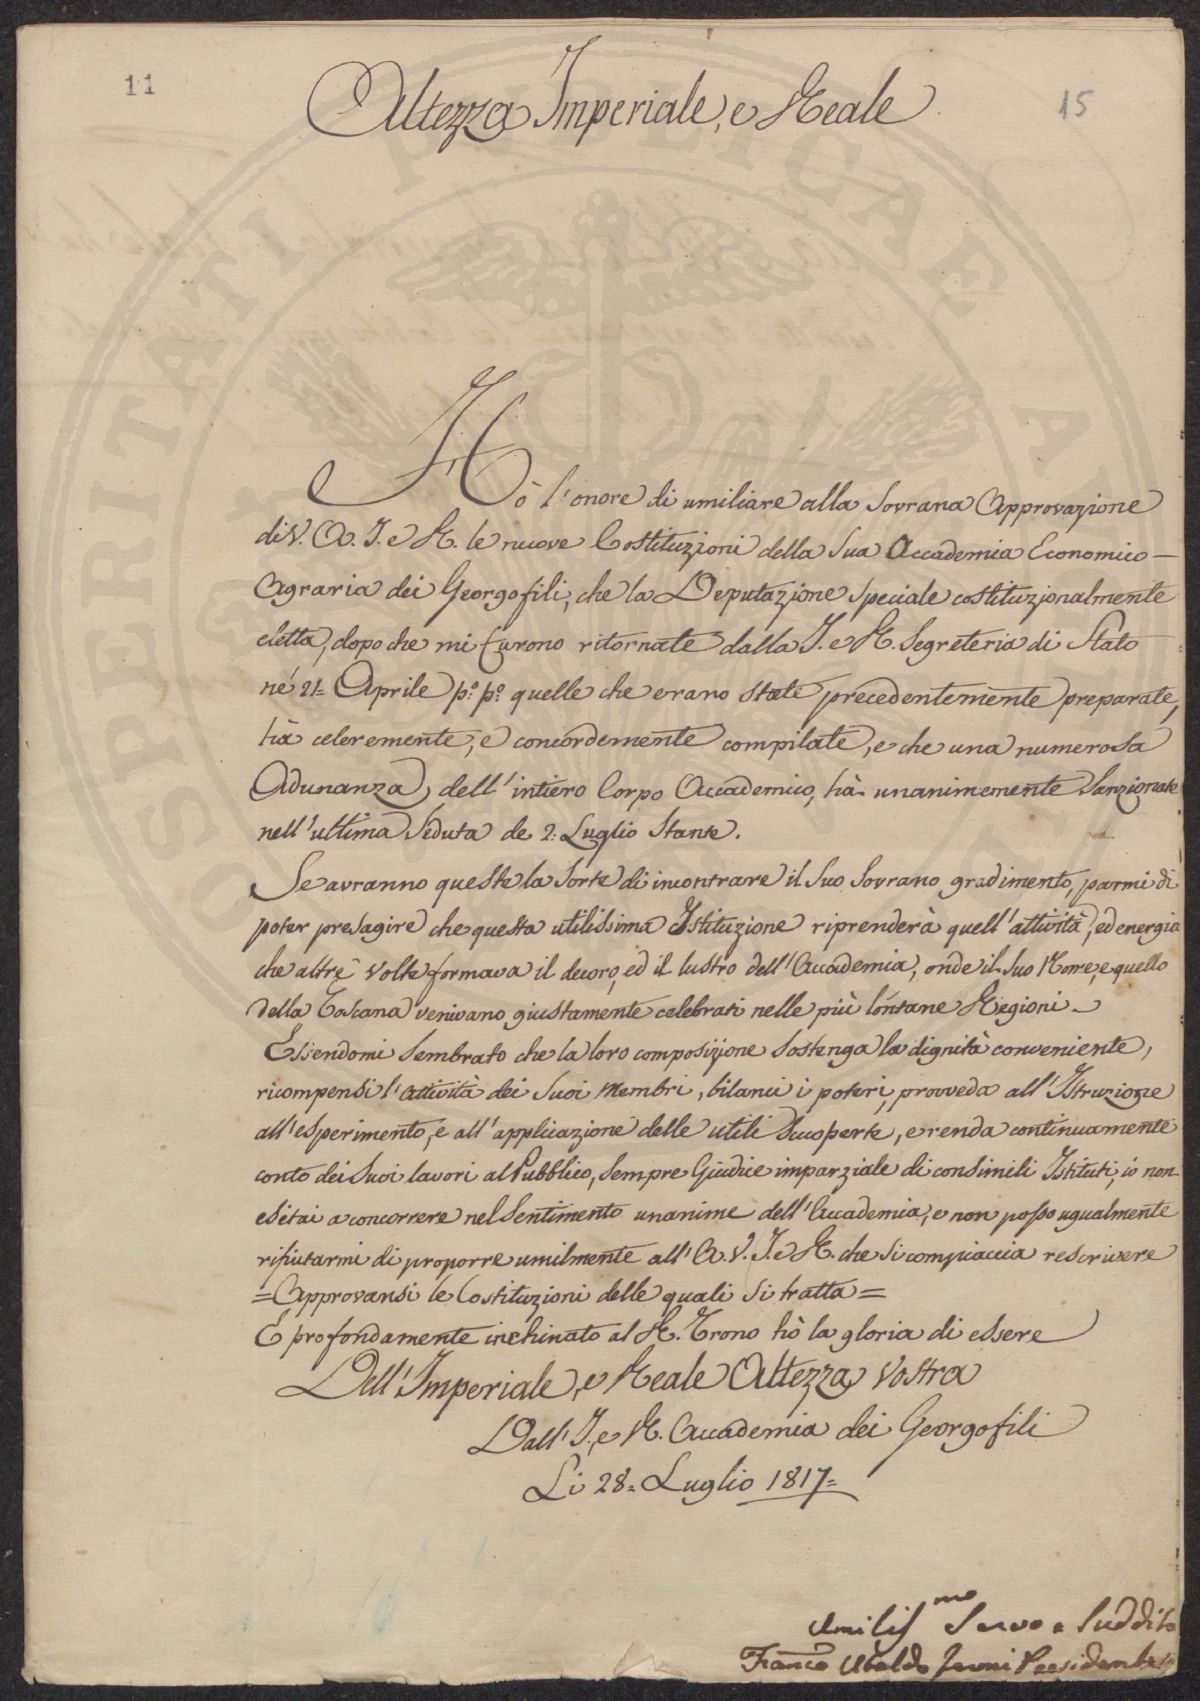 11
15
Altezza Imperiale, e Reale
Hò l'onore di umiliare alla Sovrana Approvazione
di V. A. I. e R. le nuove Costituzioni della Sua Accademia Economico-
Agraria dei Georgofili, che la Deputazione Speciale costituzionalmente
eletta, dopo che mi furono ritornate dalla I. e R. Segreteria di Stato
ne' 21= Aprile p:º p:º quelle che erano state precedentemente preparate,
hà celeremente, e concordemente compilate, e che una numerosa
Adunanza, dell'intiero Corpo Accademico, hà unanimemente Sanzionate
nell'ultima Seduta de 2: Luglio Stante.
Se avranno queste la Sorte di incontrare il Suo Sovrano gradimento, parmi di
poter presagire che questa utilissima Istituzione riprenderà quell'attività, ed energia
che altre volte formava il decoro, ed il lustro dell'Accademia, onde il Suo Nome, e quello
della Toscana venivano giustamente celebrati nelle più lontane Regioni -
Essendomi Sembrato che la loro composizione Sostenga la dignità conveniente,
ricompensi l'attività dei Suoi Membri, bilanci i poteri, provveda all'Istruzione
all'esperimento, e all'applicazione delle utili Scoperte, e renda continuamente
conto dei Suoi lavori al Pubblico, Sempre Giudice imparziale di consimili Istituti, io non
esitai a concorrere nel Sentimento unanime dell'Accademia, e non posso ugualmente
rifiutarmi di proporre umilmente all'A. V. I. e R. che Si compiaccia rescrivere
=Approvansi le Costituzioni delle quali Si tratta=
E profondamente inchinato al R. Trono hò la gloria di essere
Dell'Imperiale, e Reale Altezza Vostra
Dall'I. e R. Accademia dei Georgofili
Li 28= Luglio 1817=
Umiliss mo Servo e Suddito
Franco Ubaldo Presidente
SPERITATI PUBLICAE